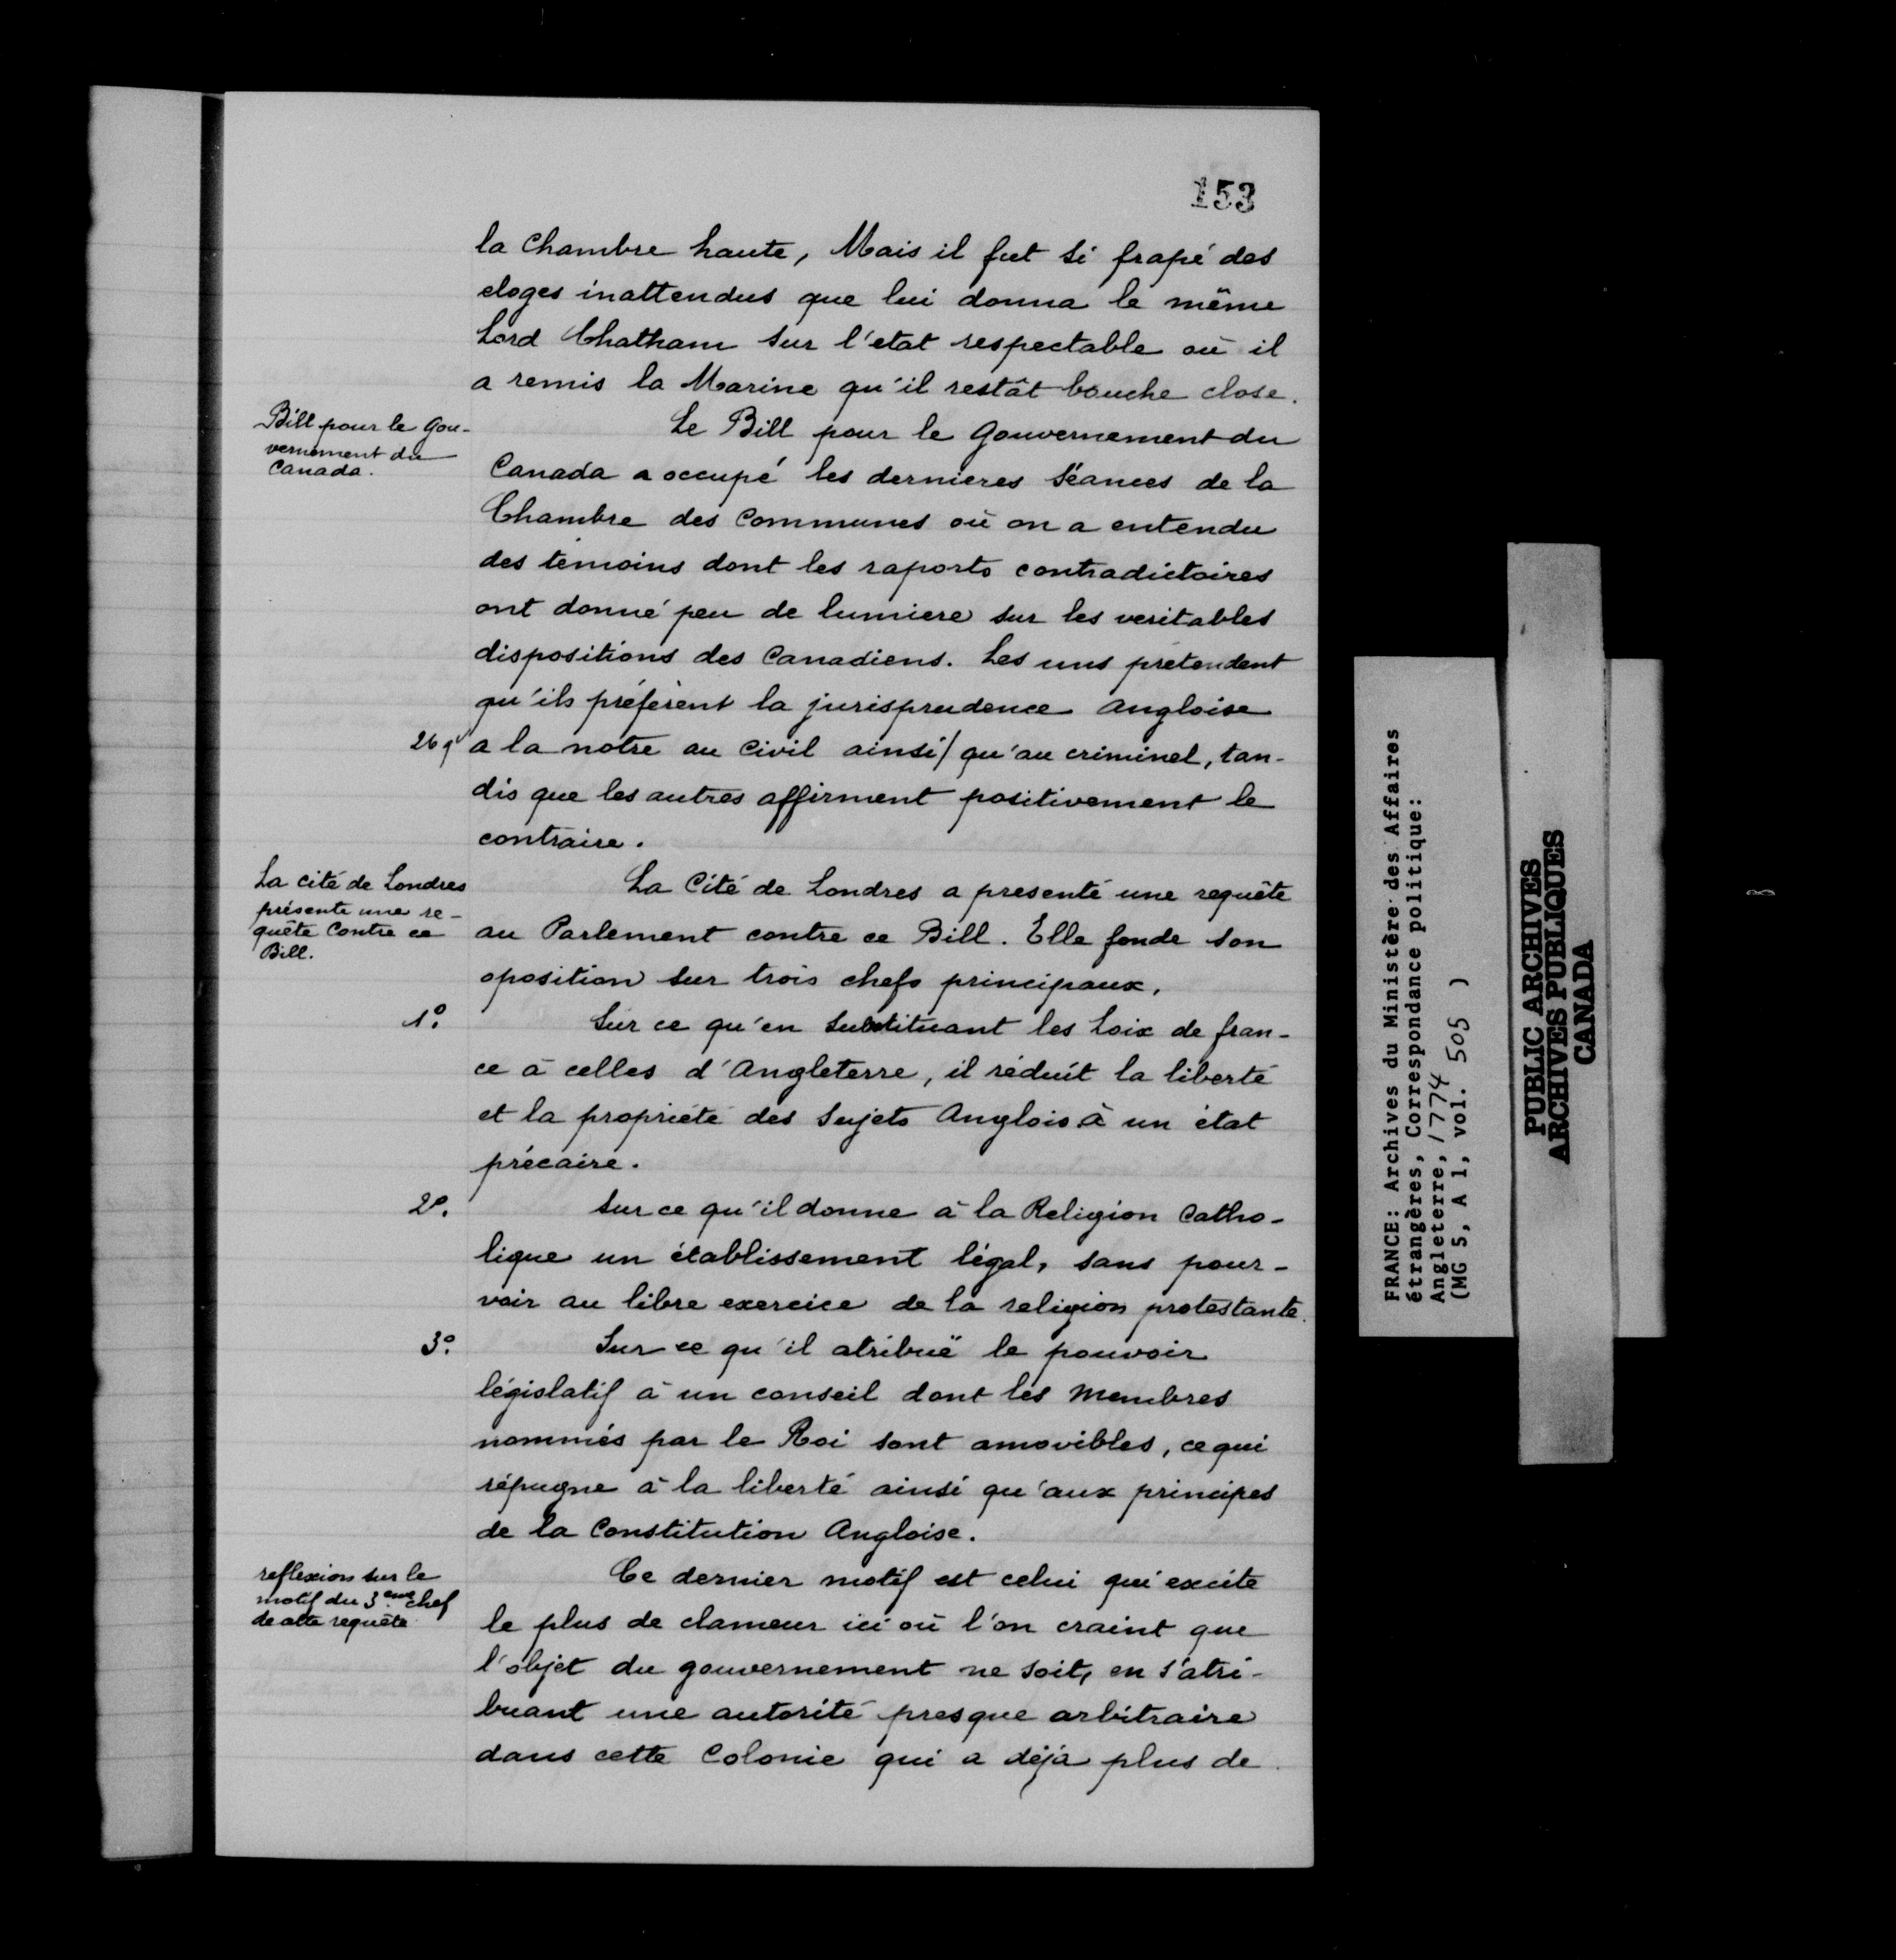 153
la Chambre haute, Mais il fut si frapé des
eloges inattendus que lui donna le même
Lord Chatham sur l'etat respectable où il
a remis la Marine qu'il restât bouche close.
Bill pour le Gou-
vernement du
Canada.
Le Bill pour le Gouvernement du
Canada a occupé les dernieres séances de la
Chambre des Communes où on a entendu
des temoins dont les raports contradictoires
ont donné peu de lumiere sur les veritables
dispositions des Canadiens. Les uns prétendent
qu'ils préfèrent la jurisprudence Angloise
a la notre au Civil ainsi/ qu'au criminel, tan-
dis que les autres affirment positivement le
contraire.
La cité de Londres
présente une re-
quête contre ce
Bill.
La Cité de Londres a presenté une requête
au Parlement contre ce Bill. Elle fonde son
oposition sur trois chefs principaux.
1º.
Sur ce qu'en substituant les Loix de fran-
ce à celles d'Angleterre, il réduit la liberté
et la propriété des Sujets Anglois à un état
précaire.
2º.
Sur ce qu'il donne à la Religion Catho-
lique un établissement légal, sans pour-
voir au libre exercice de la religion protestante.
3º.
Sur ce qu'il atribuë le pouvoir
législatif à un conseil dont les Membres
nommés par le Roi sont amovibles, ce qui
répugne à la liberté ainsi qu'aux principes
de la Constitution Angloise.
reflexion sur le
motif du 3.eme chef
de cette requête
Ce dernier motif est celui qui excite
le plus de clameur ici où l'on craint que
l'objet du gouvernement ne soit, en s'atri-
buant une autorité presque arbitraire
dans cette Colonie qui a déjà plus de
FRANCE: Archives du Ministère des Affaires
étrangères, Correspondance politique:
Angleterre, 1774
(MG 5, A 1, vol. 505 )
PUBLIC ARCHIVES
ARCHIVES PUBLIQUES
CANADA